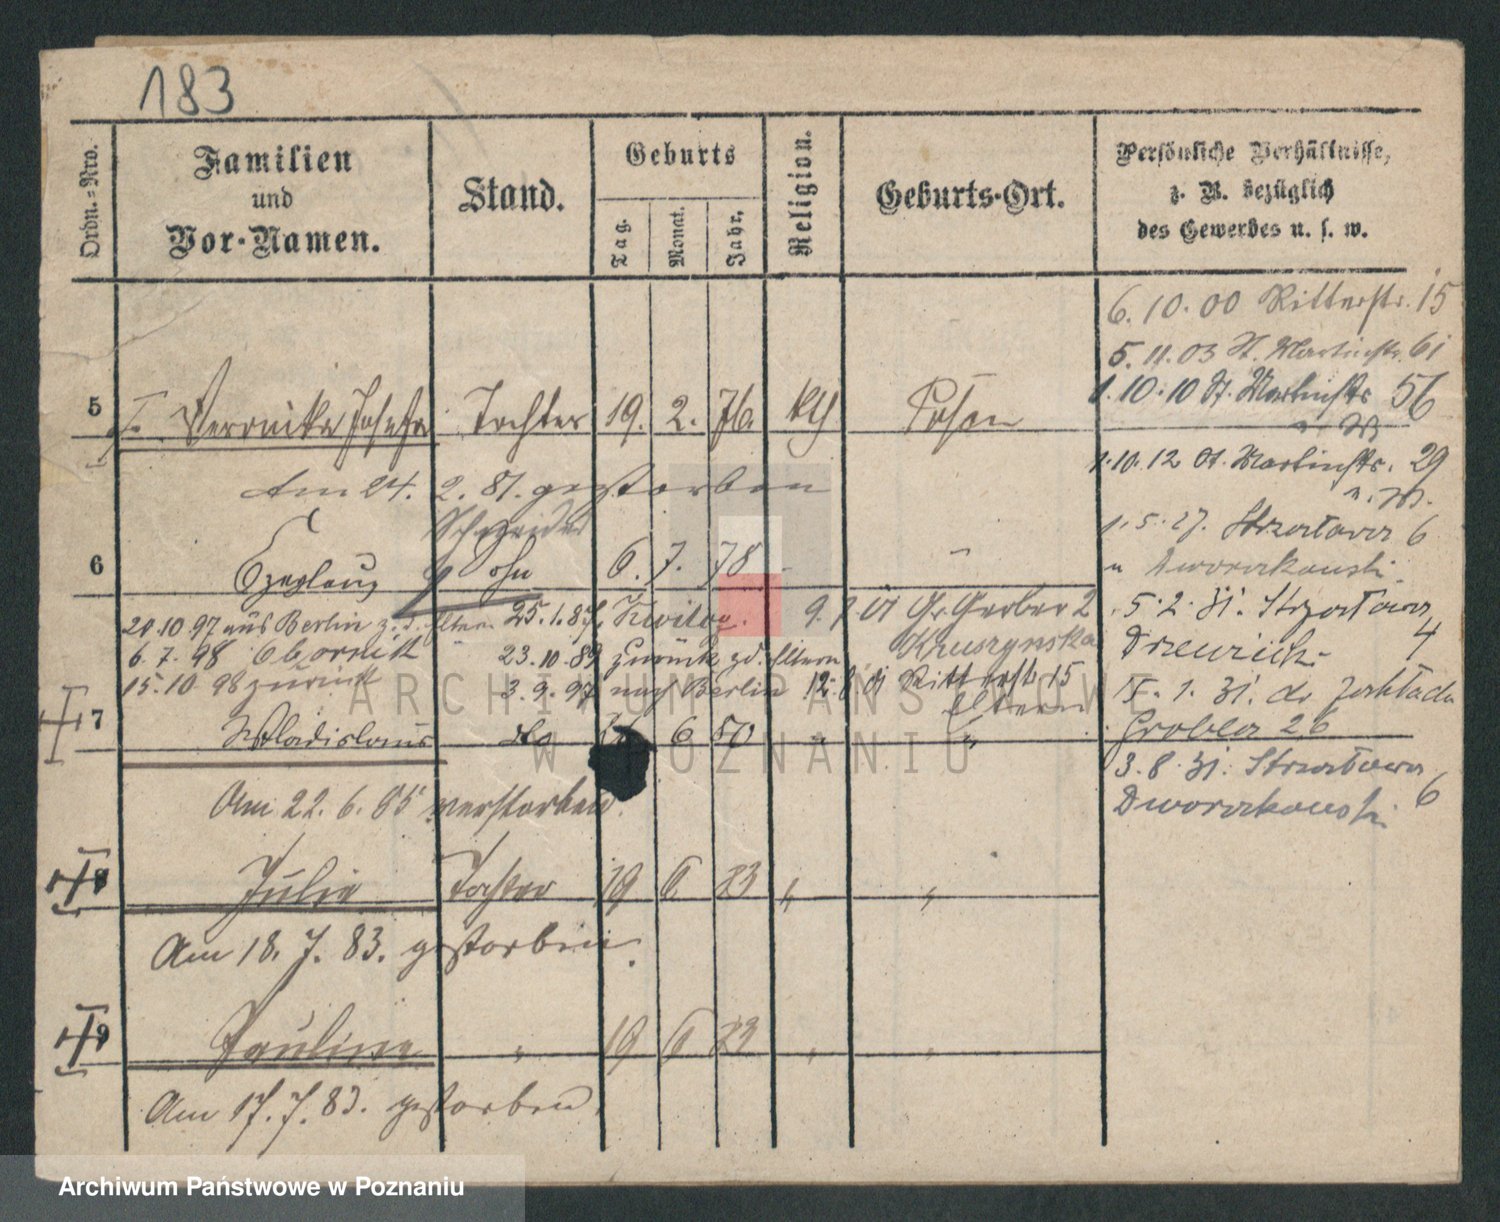 183
Ordn.=Nro.
Familien
und
Vor-Namen.
Stand.
Geburts
Tag.
Monat.
Jahr.
Religion.
Geburts-Ort.
Persönliche Verhältnisse,
z. B. bezüglich
des Gewerbes u. s. w.
6. 10. 00 Ritterstr. 15
5. 11. 03 St. Martinstr. 61
1. 10. 10 St. Martinstr 56
5 Veronika Josefa Tochter 19. 2. 76. kth Posen
1. 10. 12 St. Martinstr. 29
Am 24. 2. 81. gestorben
Schneider
1. 5. 27. Strzałowa 6
6 Czeslaus Sohn 6. 7. 78 "
u Dworzakowski.
20. 10. 97 aus Berlin z. d. Eltern 25. 1. 87. Kwilcz. 9. 7 01 Gr. Gerber 2
5. 2. 31. Strzałowa 4
6. 7. 98 Obornik 23. 10. 89 zurück zd. Eltern Kruszynska
15. 10. 98 zurück 3. 9. 97 nach Berlin 12. 8 01 Ritterstr. 15
Eltern
1. 31. do Zakładu
7 Wladislaus do 6 80 " "
Grobla 26
3. 8. 31. Strzałowa 6
Am 22. 6. 85 verstorben.
Dworzakowski
8 Julie Tochter 19 6 83 " "
Am 18. 7. 83. gestorben.
9 Pauline " 19 6 83 " "
Am 17. 7. 83. gestorben.
ARCHIWUM PAŃSTWOWE
W POZNANIU
Archiwum Państwowe w Poznaniu